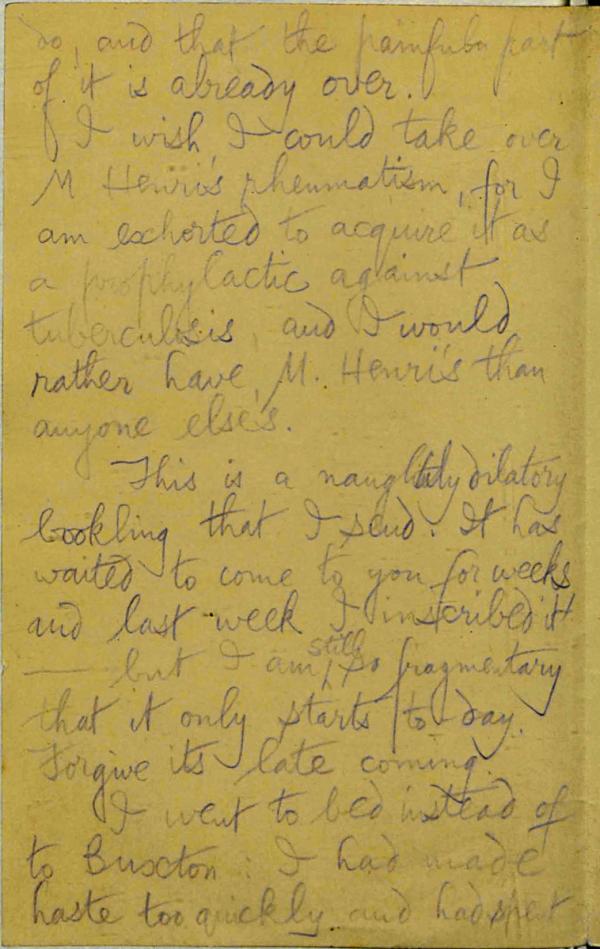 so, and that the painfuler part
of it is already over.
I wish I could take over
M Henri's rheumatism, for I
am exhorted to acquire it as
a prophylactic against
tuberculosis, and I would
rather have M. Henri's than
anyone else's.
This is a naughtily dilatory
bookling that I send. It has
waited to come to you for weeks
and last week I inscribed it
— but I am still so fragmentary
that it only starts to-day.
Forgive its late coming.
I went to bed instead of
to Buxton: I had made
haste too quickly and had spent